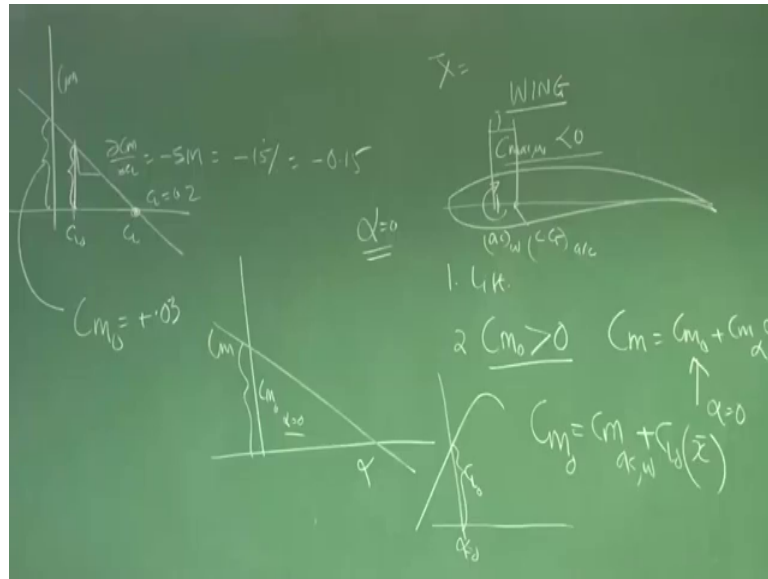 Cm
∂Cm/∂CL = -SM = -15% = -0.15
CL = 0.2
CL0
CL
Cm0 = +.03
α=0
x̄ =
WING
Cmac,w <0
(ac)w (CG) a/c
1. Lift.
2 Cm0 >0
Cm = Cm0 + Cmα
α=0
Cm
Cm0
α=0
α
CL0
α0
Cm0 = Cm ac,w + CL0(x̄)